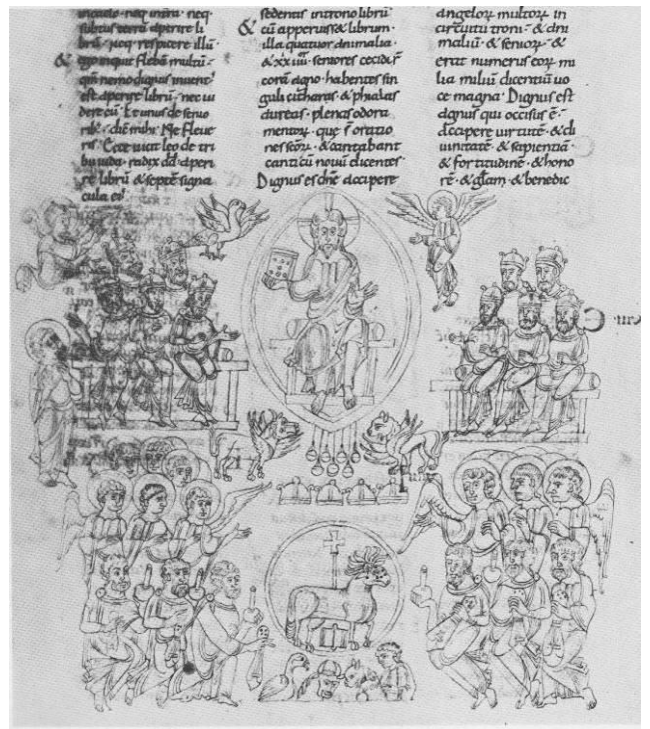 subtus terrā aperire li
brū· neq; respicere illū·
& ego inquit flebā multū·
qm̄ nemo dignus inuent'
est aperire librū· nec ui
dere eū· Et unus de senio
rib; dic̄ mihi· Ne fleue
ris· Ecce uicit leo de tri
bu iuda· radix dd̄· aperi
re librū & septē signa
cula ei'
sedentis in throno librū·
& cū apperuisset librum·
illa quatuor animalia·
& xx iiii seniores cecider̄
corā agno· habentes sin
guli citharas· & phialas
aureas· plenas odora
mentoꝝ· que s̄ oratio
nes sc̄oꝝ· & cantabant
canticū nouū dicentes·
Dignus es dn̄e accipere
angeloꝝ multoꝝ in
circuitu troni· & ani
maliū· & senioꝝ· &
erat numerus eoꝝ mi
lia miliū dicentiū uo
ce magna· Dignus est
agnus qui occisus ē·
accipere uirtutē· & di
uinitatē· & sapientiā·
& fortitudinē· & hono
rē· & glām· & benedic